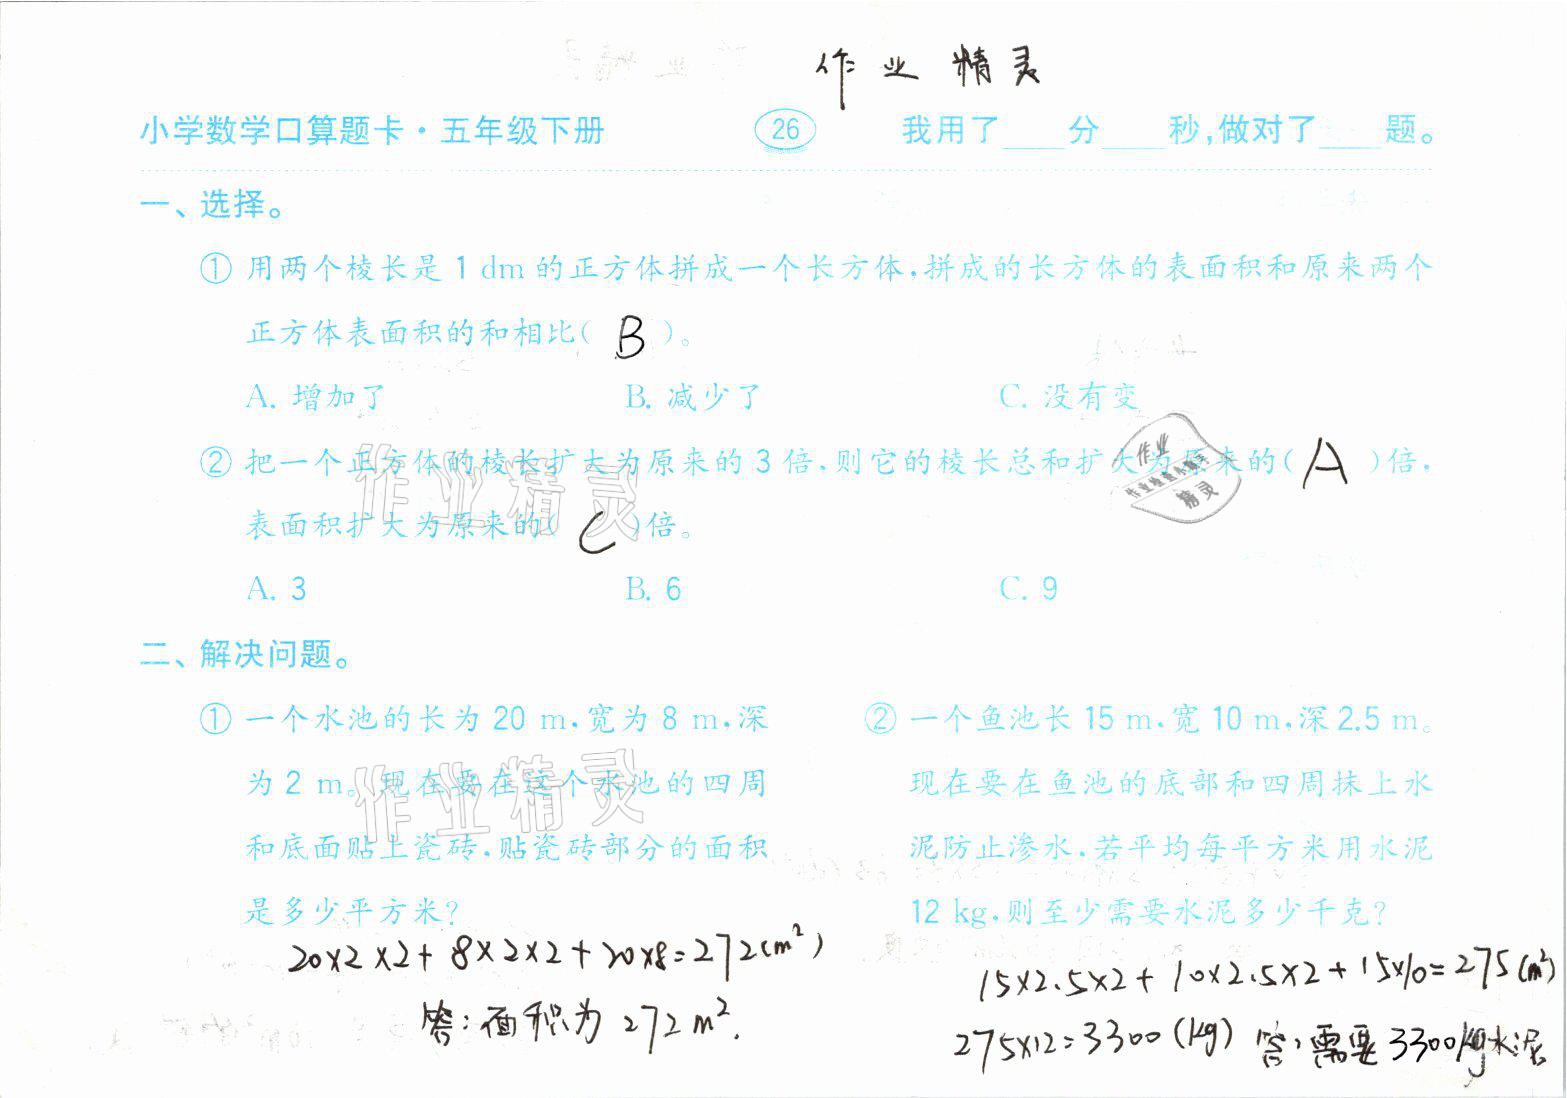 作业精灵
小学数学口算题卡·五年级下册 26 我用了____分____秒,做对了____题。
一、选择。
① 用两个棱长是1 dm的正方体拼成一个长方体,拼成的长方体的表面积和原来两个
正方体表面积的和相比( B )。
A. 增加了 B. 减少了 C. 没有变
② 把一个正方体的棱长扩大为原来的3倍,则它的棱长总和扩大为原来的( A )倍,
表面积扩大为原来的( C )倍。
A. 3 B. 6 C. 9
作业精灵
作业
作业检查小精灵
精灵
二、解决问题。
① 一个水池的长为20 m,宽为8 m,深
为2 m。现在要在这个水池的四周
和底面贴上瓷砖,贴瓷砖部分的面积
是多少平方米?
20×2×2+8×2×2+20×8=272(m²)
答:面积为272m².
作业精灵
② 一个鱼池长15 m,宽10 m,深2.5 m。
现在要在鱼池的底部和四周抹上水
泥防止渗水,若平均每平方米用水泥
12 kg,则至少需要水泥多少千克?
15×2.5×2+10×2.5×2+15×10=275(m²)
275×12=3300(kg) 答:需要3300kg水泥